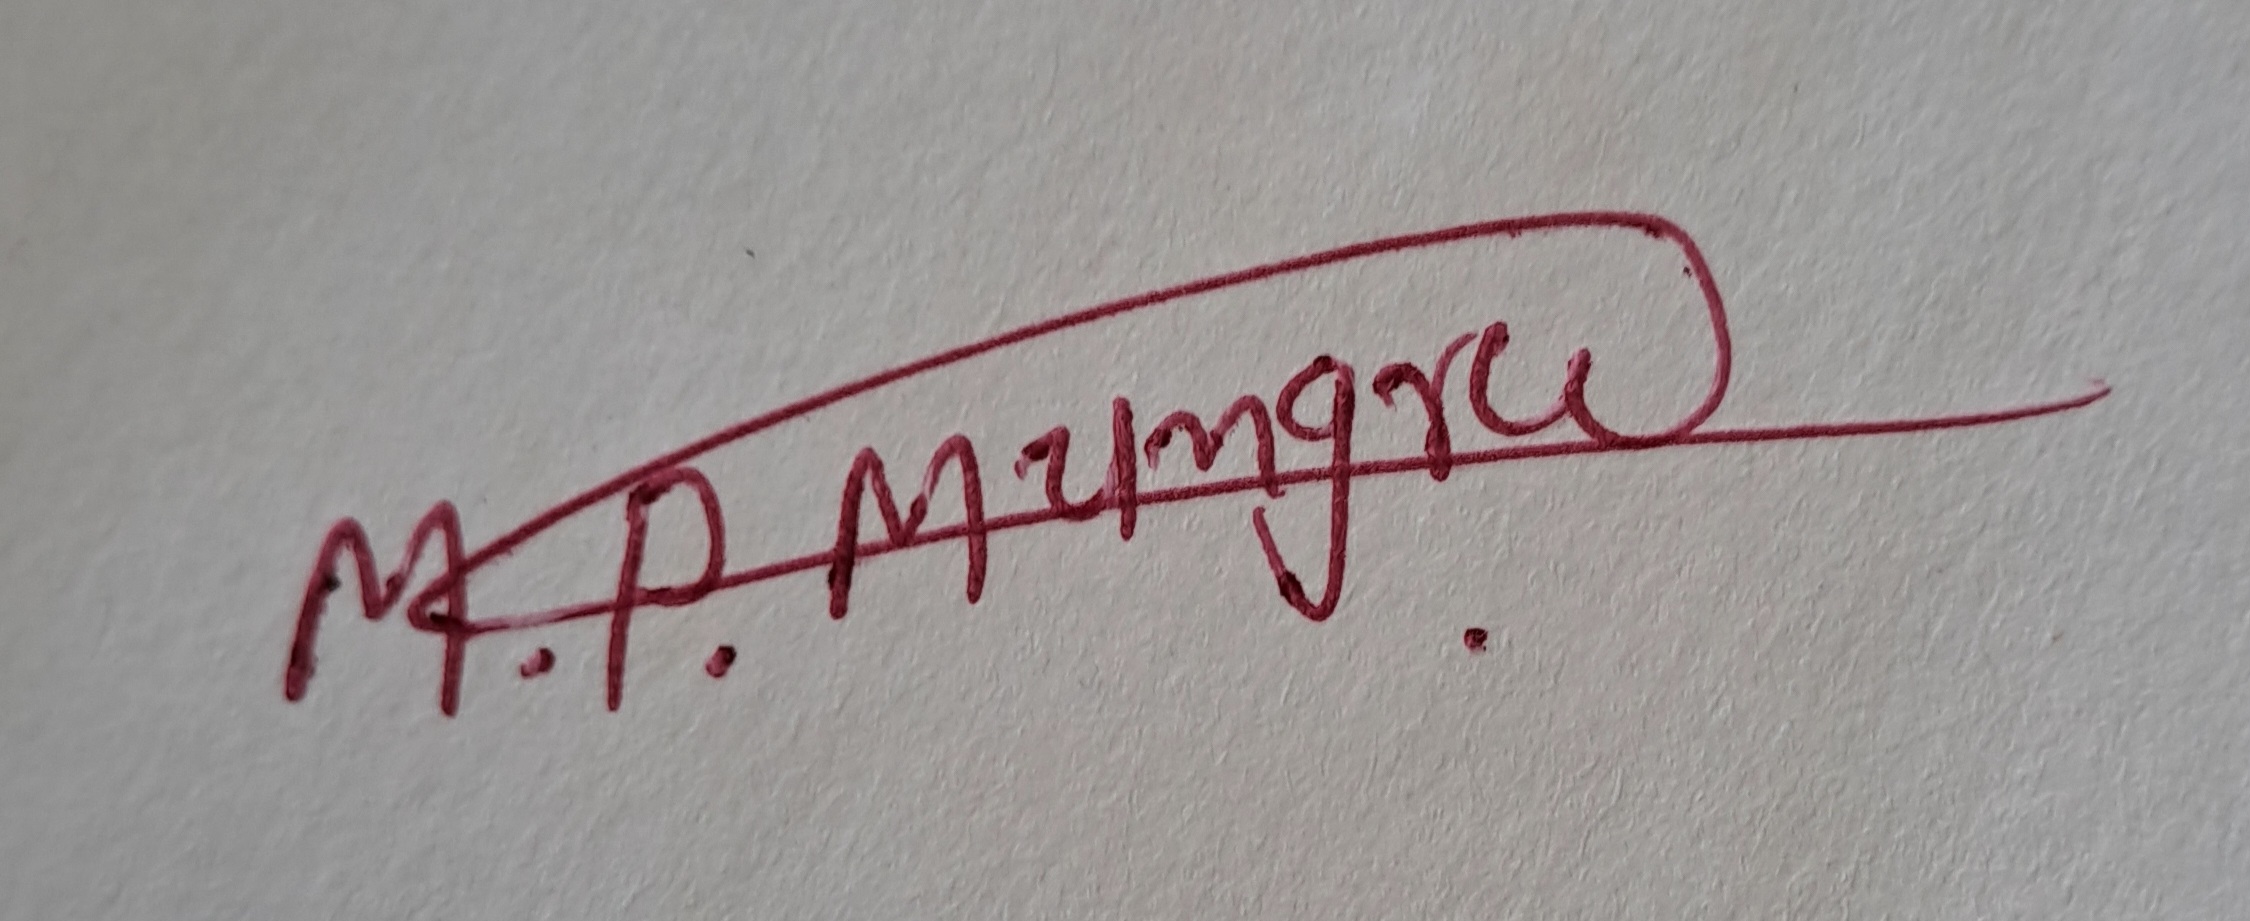 M.P. Mungre